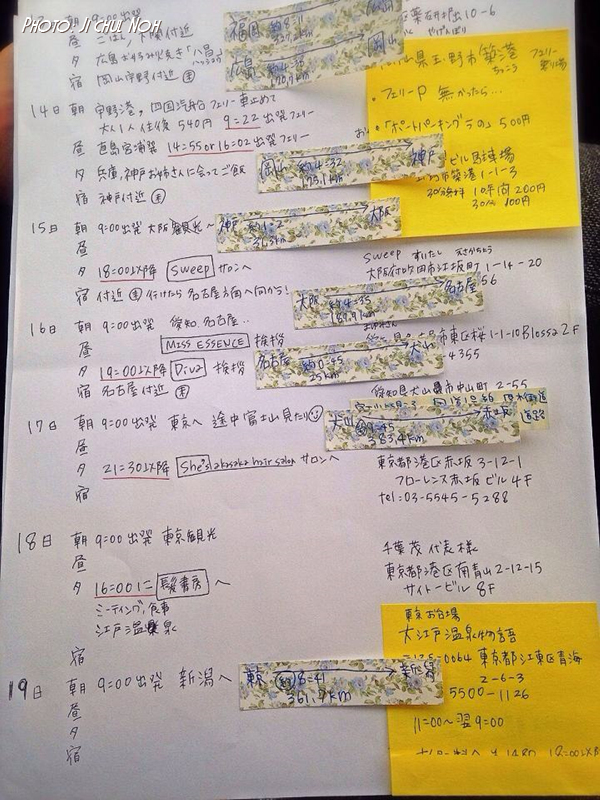 PHOTO: JI CHUL NOH
朝 9:00出発
昼 ごはん 下関付近
夕 広島お好み焼き「八昌」
宿 岡山宇野付近
福岡
広島 約4:35 岡山
14日 朝 宇野港，四国汽船 フェリー 車止めて
大人1人 往復 540円 9:22出発フェリー
昼 直島宮浦発 14:55 or 16:02出発フェリー
夕 兵庫，神戸お姉さんに会ってご飯
宿 神戸付近
岡山 約4:32 神戸
県玉野市築港
ちっこう
フェリー
・フェリーP 無かったら…
・「ポートパーキングうの」500円
ビル馬駐場
市築港1-1-3
200円
30分 100円
15日 朝 9:00出発 大阪観光～
昼
夕 18:00以降 Sweep サロンへ
宿 付近 行けたら名古屋方面へ向から！
神戸 約1:2 大阪
36.3km
Sweep すいたし えさかちょう
大阪府吹田市江坂町1-14-20
大阪 約4:35 名古屋
189.9km
56
16日 朝 9:00出発 愛知，名古屋‥
昼 MISS ESSENCE 挨拶
夕 19:00以降 Diva 挨拶
宿 名古屋付近
市東区桜1-1-10 Blossa 2F
名古屋 約0:45 犬山
25km
4355
愛知県犬山市中山町2-55
17日 朝 9:00出発 東京へ 途中富士山見たり
昼
夕 21:30以降 She's akasaka hair salon サロンへ
宿
犬山 9:45 赤坂
383.4km
道路
東京都港区赤坂3-12-1
フローレンス赤坂ビル4F
tel:03-5545-5288
18日 朝 9:00出発 東京観光
昼
夕 16:00に 髪書房へ
ミーティング，食事
江戸温泉
宿
千葉茂代表様
東京都港区南青山2-12-15
サイトービル8F
19日 朝 9:00出発 新潟へ
昼
夕
宿
東京 約8:41 新潟
361.7km
東京お台場
大江戸温泉物語
0064 東京都江東区青海
2-6-3
5500-1126
11:00～翌9:00